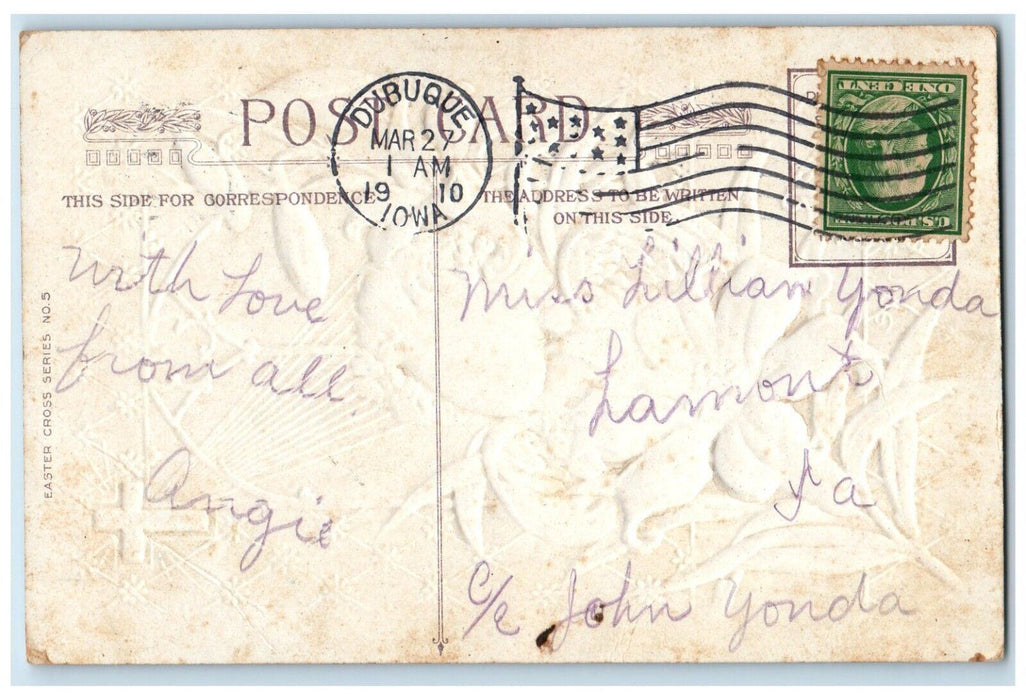 POST CARD
DUBUQUE
MAR 27
1 AM
1910
IOWA
ONE CENT
THIS SIDE FOR CORRESPONDENCE
THE ADDRESS TO BE WRITTEN
ON THIS SIDE.
EASTER CROSS SERIES NO. 5
With Love
from all.
Angie
Miss Lillian Yonda
Lamont
Ia
c/o John Yonda